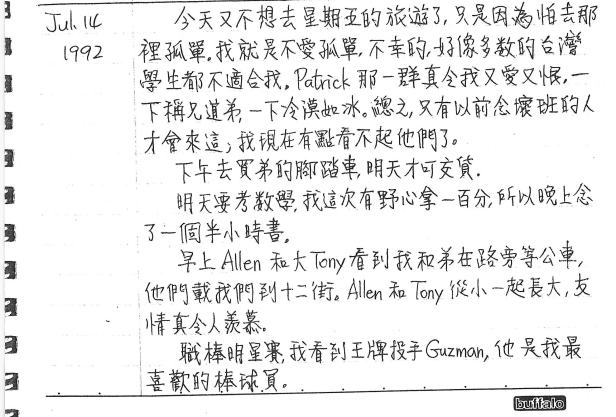 Jul. 14 今天又不想去星期五的旅遊了,只是因為怕去那
1992 裡孤單。我就是不愛孤單,不幸的,好像多数的台灣
學生都不適合我。Patrick 那一群真令我又愛又恨,一
下稱兄道弟,一下冷漠如冰。總之,只有以前念壞班的人
才會來這,我現在有點看不起他們了。
下午去買弟的腳踏車,明天才可交貨.
明天要考数學,我這次有野心拿一百分,所以晚上念
了一個半小時書。
早上 Allen 和大Tony看到我和弟在路旁等公車,
他們載我們到十二街。Allen 和 Tony 從小一起長大,友
情真令人羨慕。
職棒明星賽,我看到王牌投手Guzman,他是我最
喜歡的棒球員。
buffalo